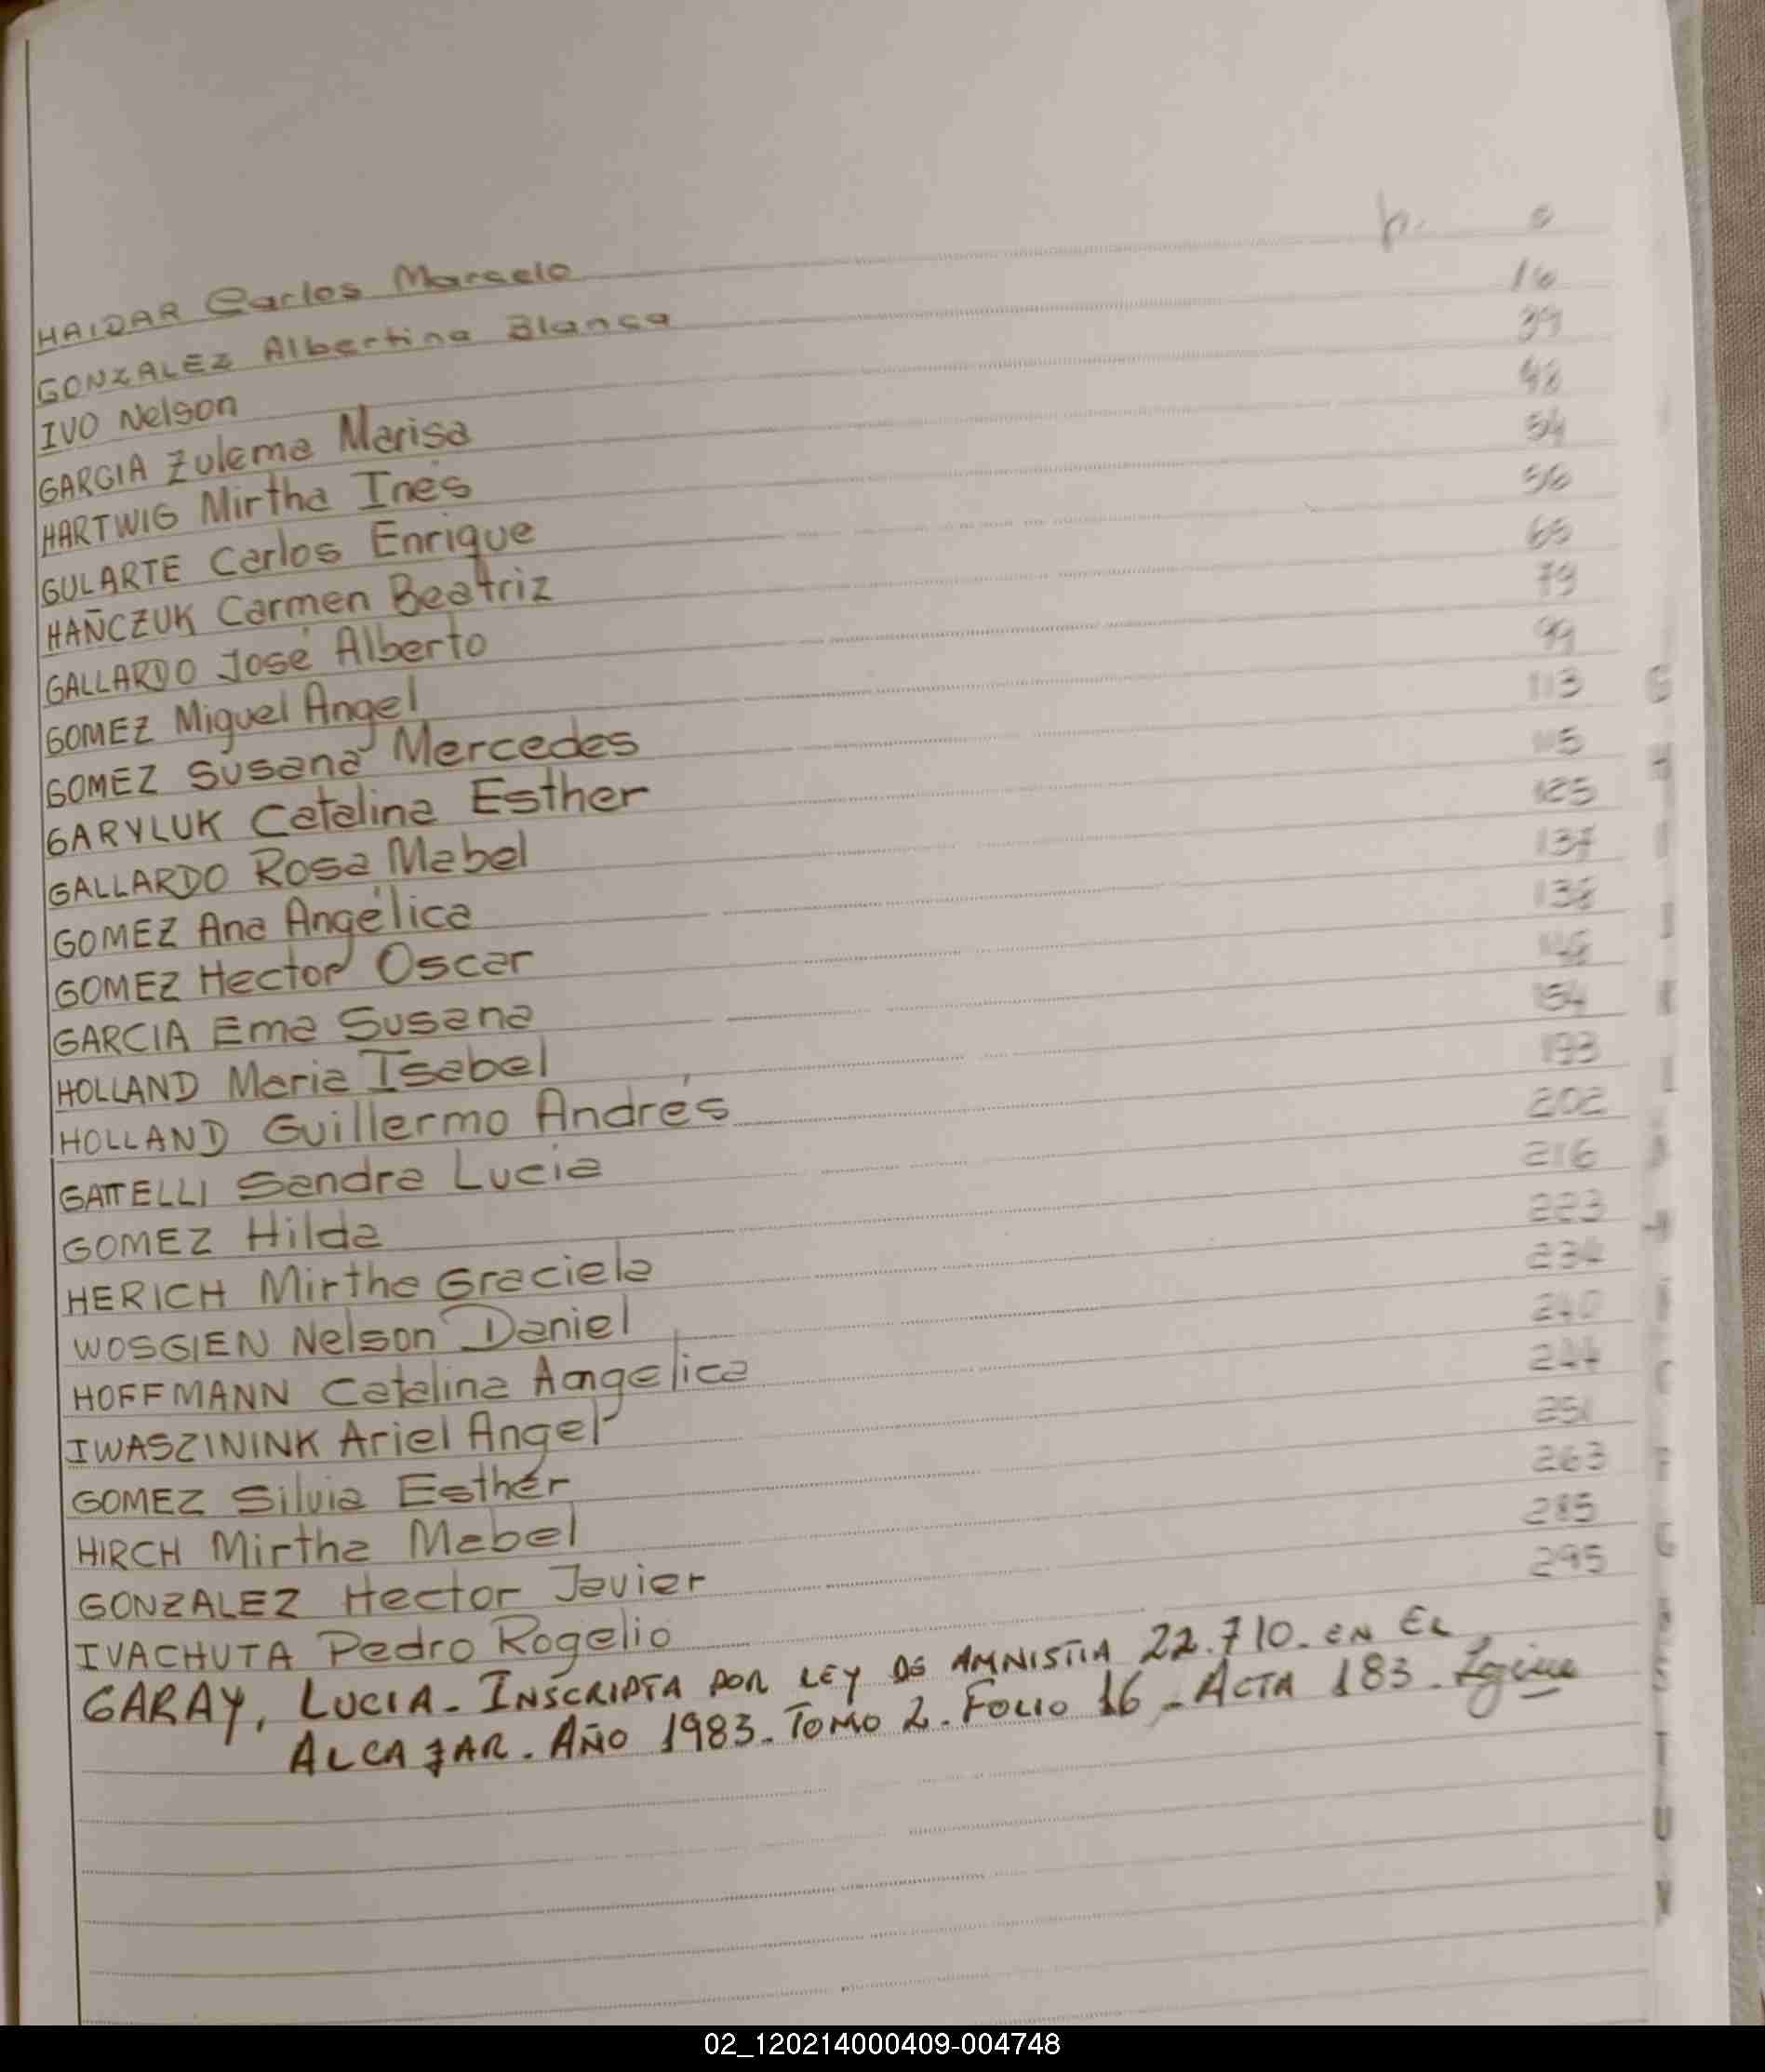 HAIDAR Carlos Marcelo
GONZALEZ Albertina Blanca 16
IVO Nelson 39
GARGIA Zulema Marisa 48
HARTWIG Mirtha Inés 54
GULARTE Carlos Enrique 56
HAÑCZUK Carmen Beatriz 65
GALLARDO José Alberto 79
GOMEZ Miguel Angel 99
GOMEZ Susana Mercedes 113
GARYLUK Catalina Esther 115
GALLARDO Rosa Mabel 125
GOMEZ Ana Angélica 137
GOMEZ Hector Oscar 138
GARCIA Ema Susana
HOLLAND Maria Isabel 154
HOLLAND Guillermo Andrés 193
GATTELLI Sandra Lucia 202
GOMEZ Hilda 216
HERICH Mirtha Graciela 223
WOSGIEN Nelson Daniel 234
HOFFMANN Catalina Aangelica 240
IWASZININK Ariel Angel 244
GOMEZ Silvia Esther 251
HIRCH Mirtha Mabel 263
GONZALEZ Hector Javier 285
IVACHUTA Pedro Rogelio 295
GARAY, LUCIA - INSCRIPTA POR LEY DE AMNISTIA 22.710. EN EL
ALCAZAR. AÑO 1983. TOMO 2. FOLIO 16 - ACTA 183.
02_120214000409-004748